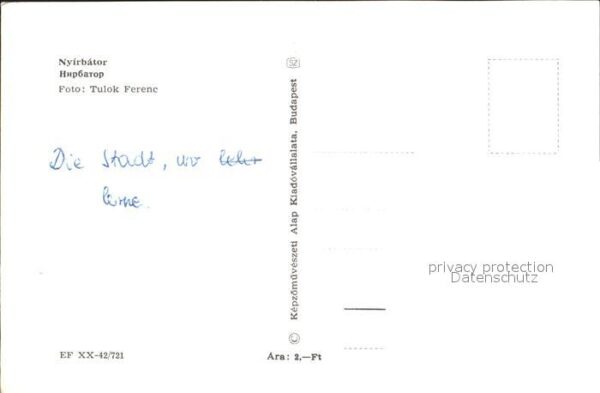 Nyírbátor
Нирбатор
Foto: Tulok Ferenc
Die Stadt, wo
lerne.
EF XX-42/721
Képzőművészeti Alap Kiadóvállalata, Budapest
Ára: 2,—Ft
privacy protection
Datenschutz